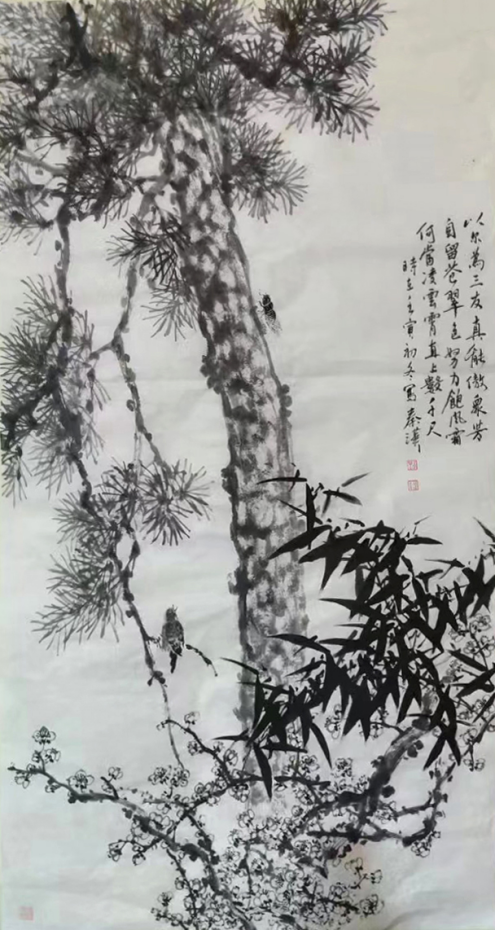 以尔为三友真能傲众芳
自留苍翠色努力饱风霜
何当凌云霄直上数千尺
时在壬寅初冬写秦汉